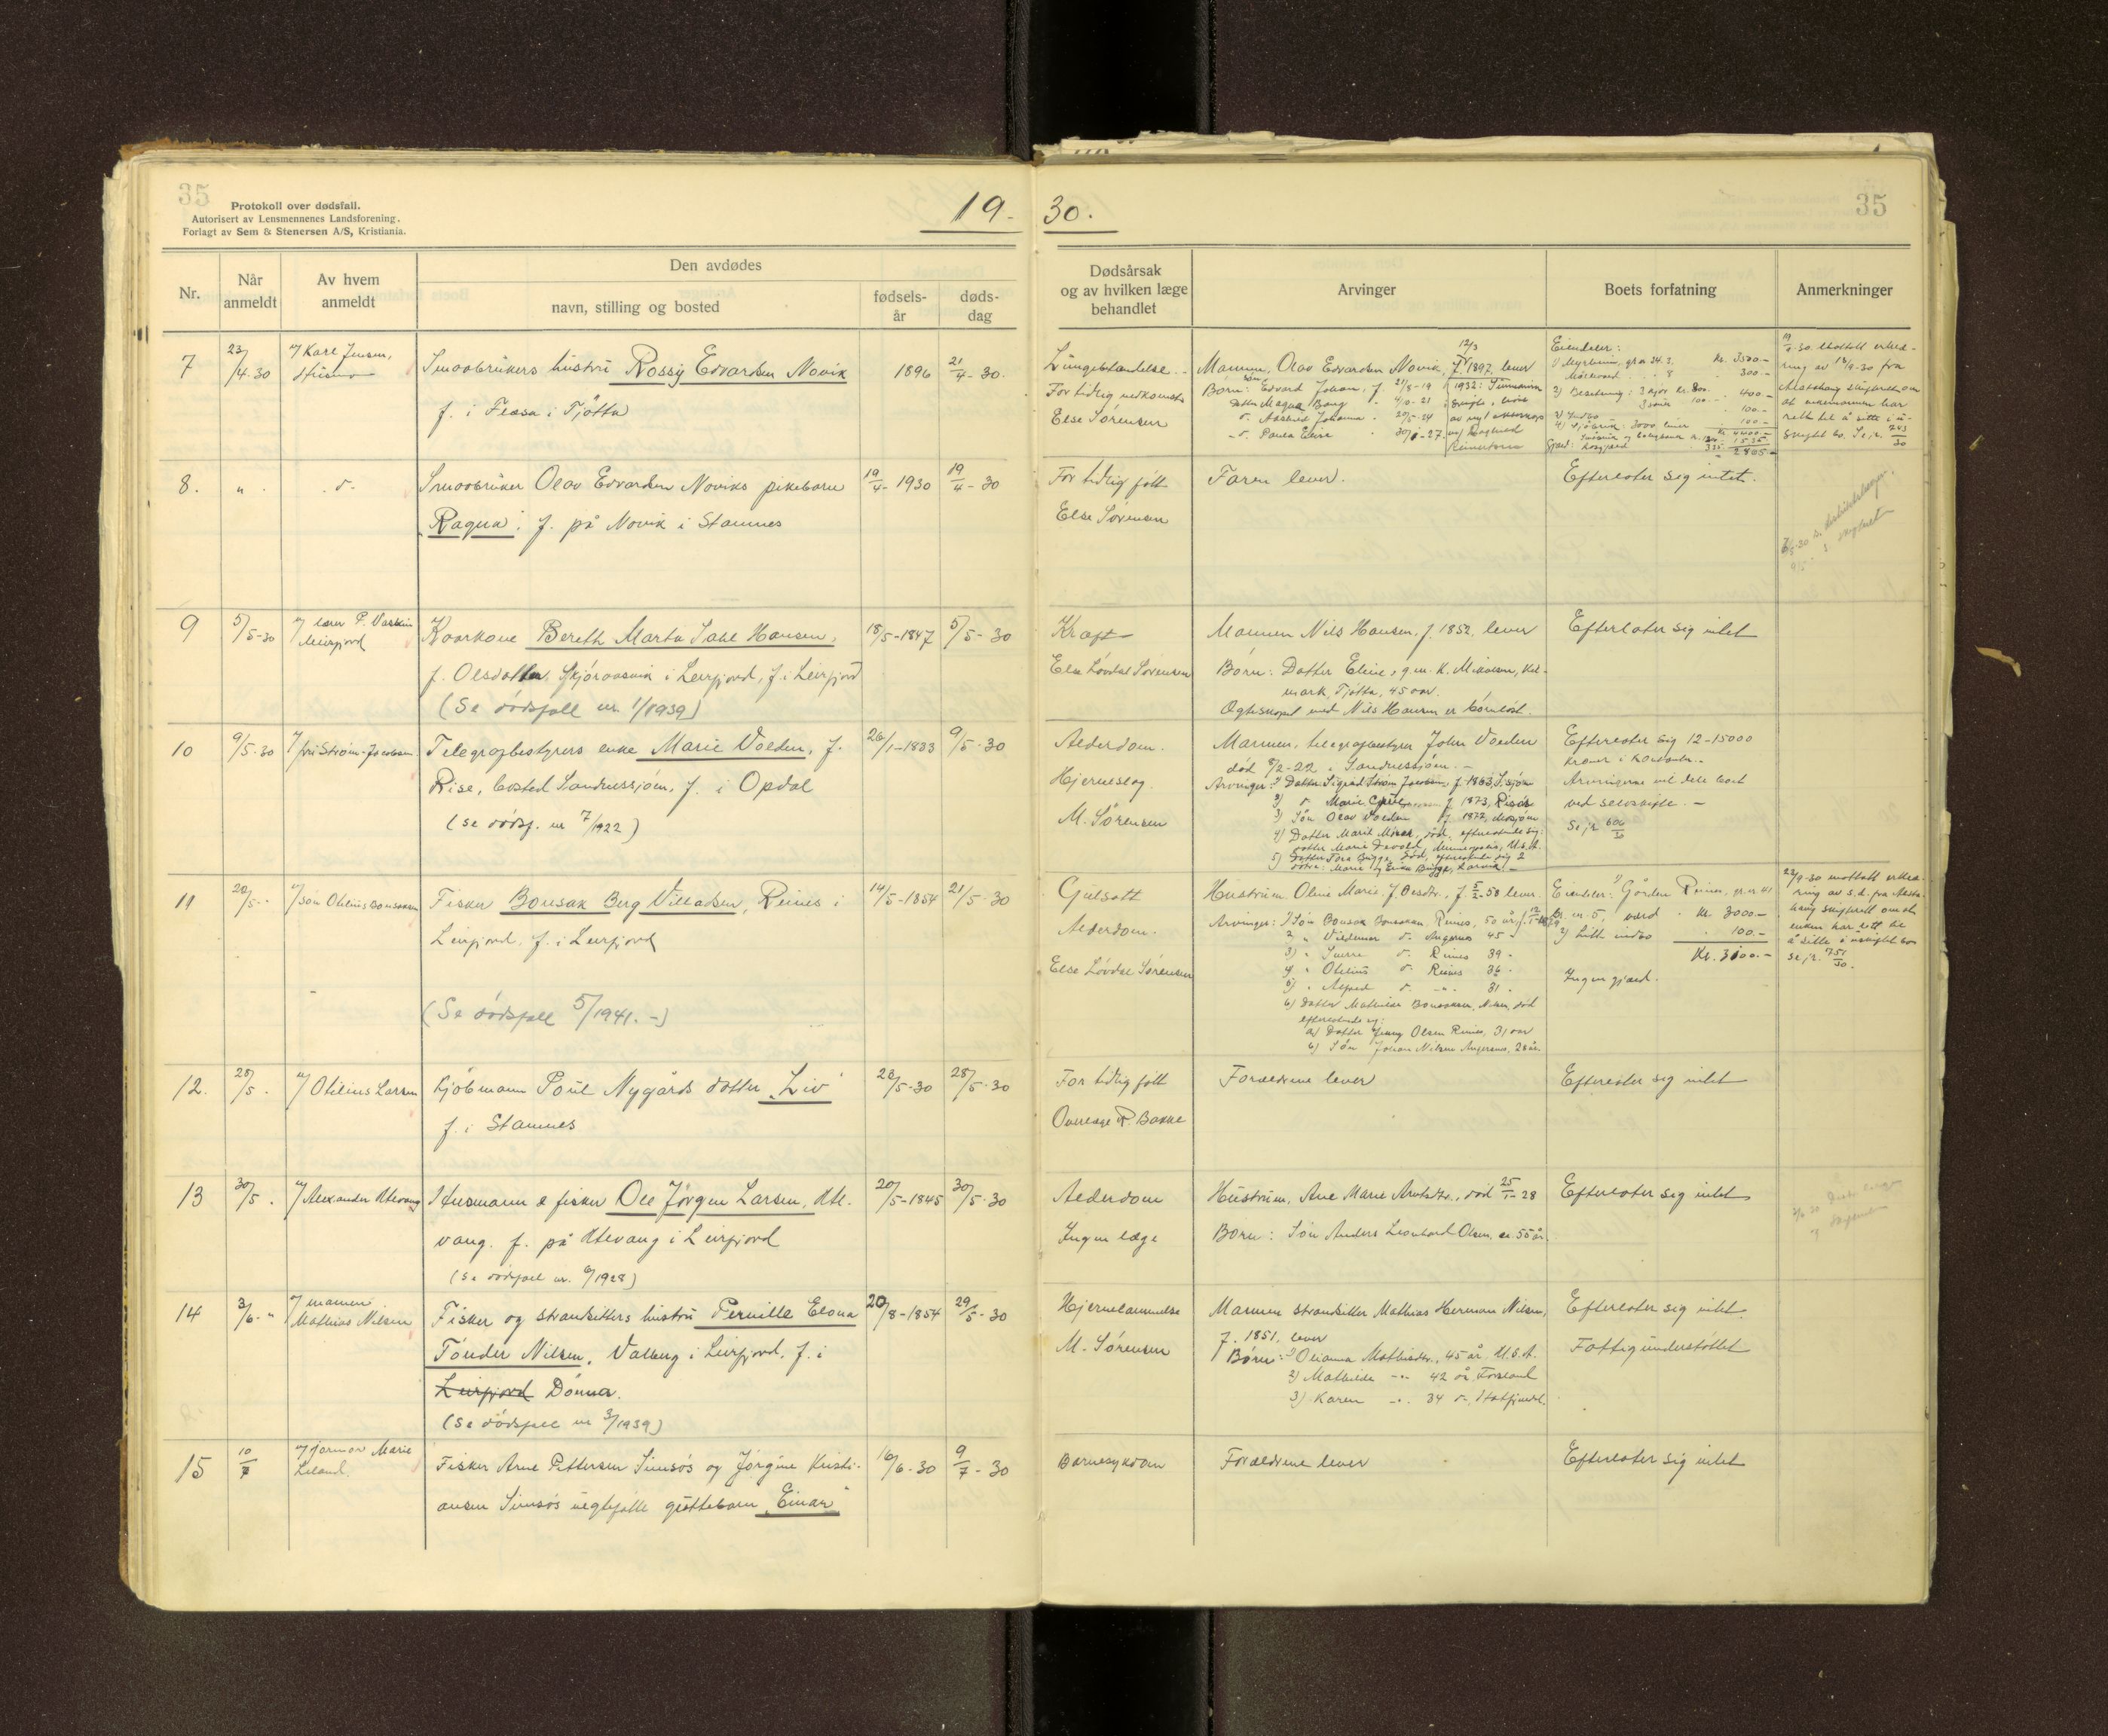 35
Protokoll over dødsfall.
Autorisert av Lensmennenes Landsforening.
Forlagt av Sem & Stenersen A/S, Kristiania.
19 30.
35
Nr.
Når anmeldt
Av hvem anmeldt
Den avdødes
navn, stilling og bosted
fødsels-år
døds-dag
Dødsårsak og av hvilken læge behandlet
Arvinger
Boets forfatning
Anmerkninger
7
23/4.30
v/ Karl Jensen,
Smaabrukers hustru Rossig Edvardsen Novik
f. i Flæsa i Tjøtta
1896
21/4-30.
Lungebetændelse.
For tidlig nedkomst
Else Sørensen
Mannen, Olav Edvardsen Novik, f. 12/3 1897, lever
Børn: Søn Edvard Johan, f. 21/8-19
Datter Magna Borg 4/10-21
d. Aasled Johanna 20/5-24
d. Paula Elise 30/1-27
Eiendeler:
kr. 3500.-
300.-
400.-
100.-
100.-
kr. 4400.-
1535
2805.-
8.
" .
. d.
Smaabruker Olav Edvardsen Noviks pikebarn
"Ragna". f. på Novik i Stamnes
19/4-1930
19/4-30
For tidlig født
Else Sørensen
Faren lever.
Efterlater sig intet.
9
5/5-30
v/ lærer P. Vaskin
Leirfjord
Kaarkone Bereth Marta Sahl Hansen,
f. Olsdatter Skjøraasvik i Leirfjord, f. i Leirfjord
(Se dødsfall nr. 1/1939)
18/5-1847
5/5-30
Kræft
Else Løvdal Sørensen
Mannen Nils Hansen, f. 1852, lever
Børn: Datter Eline, g.m. K. Mikalsen, Kel-
mark, Tjøtta, 45 aar.
Egteskapet med Nils Hansen er barnløst.
Efterlater sig intet
10
9/5.30
v/ fru Strøm-Jacobsen
Telegrafbestyrers enke Marie Voldен, f.
Rise, bosted Sandnessjøen, f. i Opdal
(se dødsf. nr 7/1922)
26/1-1833
9/5.30
Alderdom.
Hjerneslag
M. Sørensen
Mannen, telegrafbestyrer John Volden
død 8/2-22 i Sandnessjøen.-
Arvinger: 1) Datter Sigrid Strøm Jacobsen, f. 1863, S.sjøen
3) Søn Olav Volden f. 1872, Mosjøen
Efterlater sig 12-15000
kroner i kontanter.
Arvingerne vil dele boet
ved selvskifte. -
Se jr. 606/30
11
20/5.
v/ søn Otelius Bonsaksen
Fisker Bonsak Berg Villadsen, Reines i
Leirfjord, f. i Leirfjord
(Se dødsfall 5/1941. -)
14/5-1854
21/5.30
Gulsott
Alderdom.
Else Løvdal Sørensen
Hustruen Oline Marie f. Olsdtr., f. 5/2-58 lever
Arvinger: 1) Søn Bonsak Bonsaksen Reines, 50 år
2) " Vildemar d. Angernes 45 "
3) " Sverre d. Reines 39 "
4) " Otelius d. Reines 36 "
5) " Alfred d. " 31 "
6) Datter Mathilde Bonsaksen Nilsen, død
efterlatende sig:
a) Datter Jenny Olsen Reines, 31 aar
b) Søn Johan Nilsen Angersnes, 28 år
Eiendeler: 1) Gården Reines, gr.nr 41
br.nr. 5, værd kr. 3000.-
2) Litt indbo 100.-
Kr. 3100.-
Ingen gjæld.
22/9-30 mottatt erklæ-
ring av s.d. fra Alsta-
haug skifterett om at
enken har rett til
å sitte i uskiftet bo
se jr. 751/30.
12.
28/5 .
v/ Otelius Larsen
Kjøbmann Poul Nygårds datter "Liv"
f. i Stamnes
28/5-30
28/5.30
For tidlig født
Overlæge R. Bakke
Forældrene lever
Efterlater sig intet
13
30/5 .
v/ Alexander Ulevang
Husmann & fisker Ole Jørgen Larsen, Ule-
vang. f. på Ulevang i Leirfjord
(se dødsfall nr. 6/1928)
20/5-1845
30/5.30
Alderdom
Ingen læge
Hustruen, Ane Marie Arntsdtr., død 25/1-28
Børn: Søn Anders Leonhard Olsen, ca. 55 år.
Efterlater sig intet
14
3/6. "
v/ mannen
Mathias Nilsen
Fisker og strandsitters hustru Pernille Elena
Tønder Nilsen, Valberg i Leirfjord, f. i
Leirfjord Dønna.
(Se dødsfall nr 3/1939)
20/8-1854
29/5-30
Hjernelammelse
M. Sørensen
Mannen strandsitter Mathias Herman Nilsen,
f. 1851, lever
Børn: 1) Olianna Mathisdtr., 45 år, U.S.A.
2) Mathilde -"- 42 år, Forsland
3) Karen -"- 34 d.,
Efterlater sig intet.
Fattigunderstøttet
15
10/7
v/ jormor Marie
Leland.
Fisker Arne Pettersen Simsøs og Jørgine Kristi-
ansen Simsøs uegtefødte guttebarn "Einar"
16/6-30
9/7-30
Barnesykdom
Forældrene lever
Efterlater sig intet